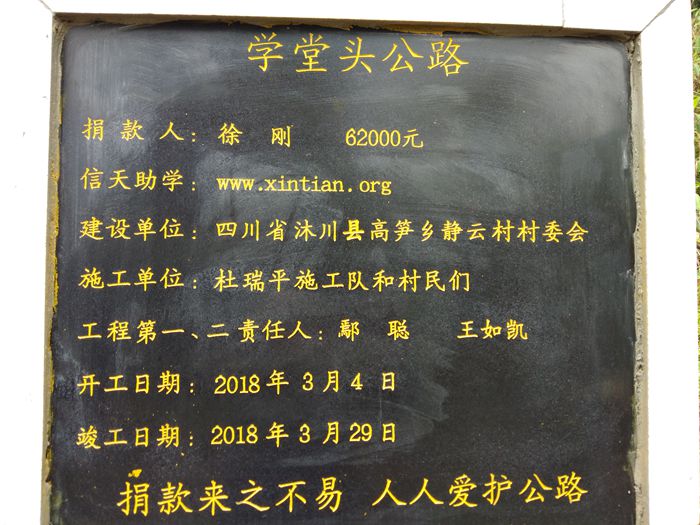 学堂头公路
捐款人：徐 刚 62000元
信天助学：www.xintian.org
建设单位：四川省沐川县高笋乡静云村村委会
施工单位：杜瑞平施工队和村民们
工程第一、二责任人：鄢 聪 王如凯
开工日期：2018年3月4日
竣工日期：2018年3月29日
捐款来之不易 人人爱护公路